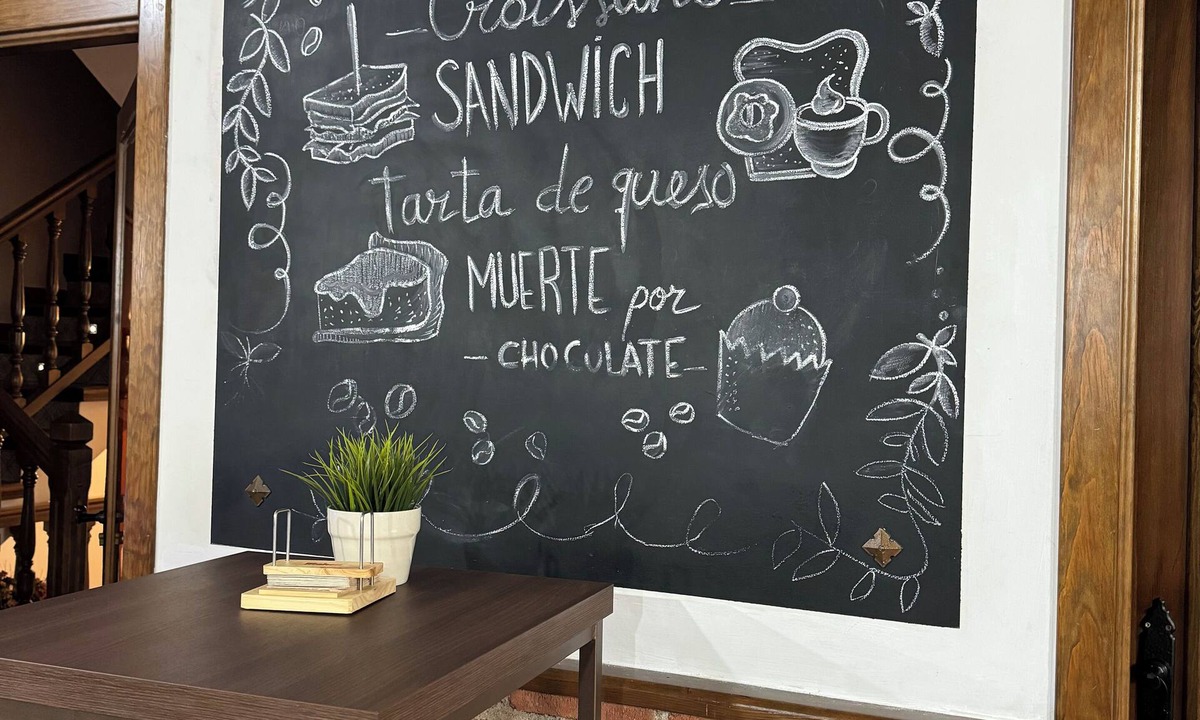 Croissant
SANDWiCH
Tarta de queso
MUERTE por
- CHOCOLATE -